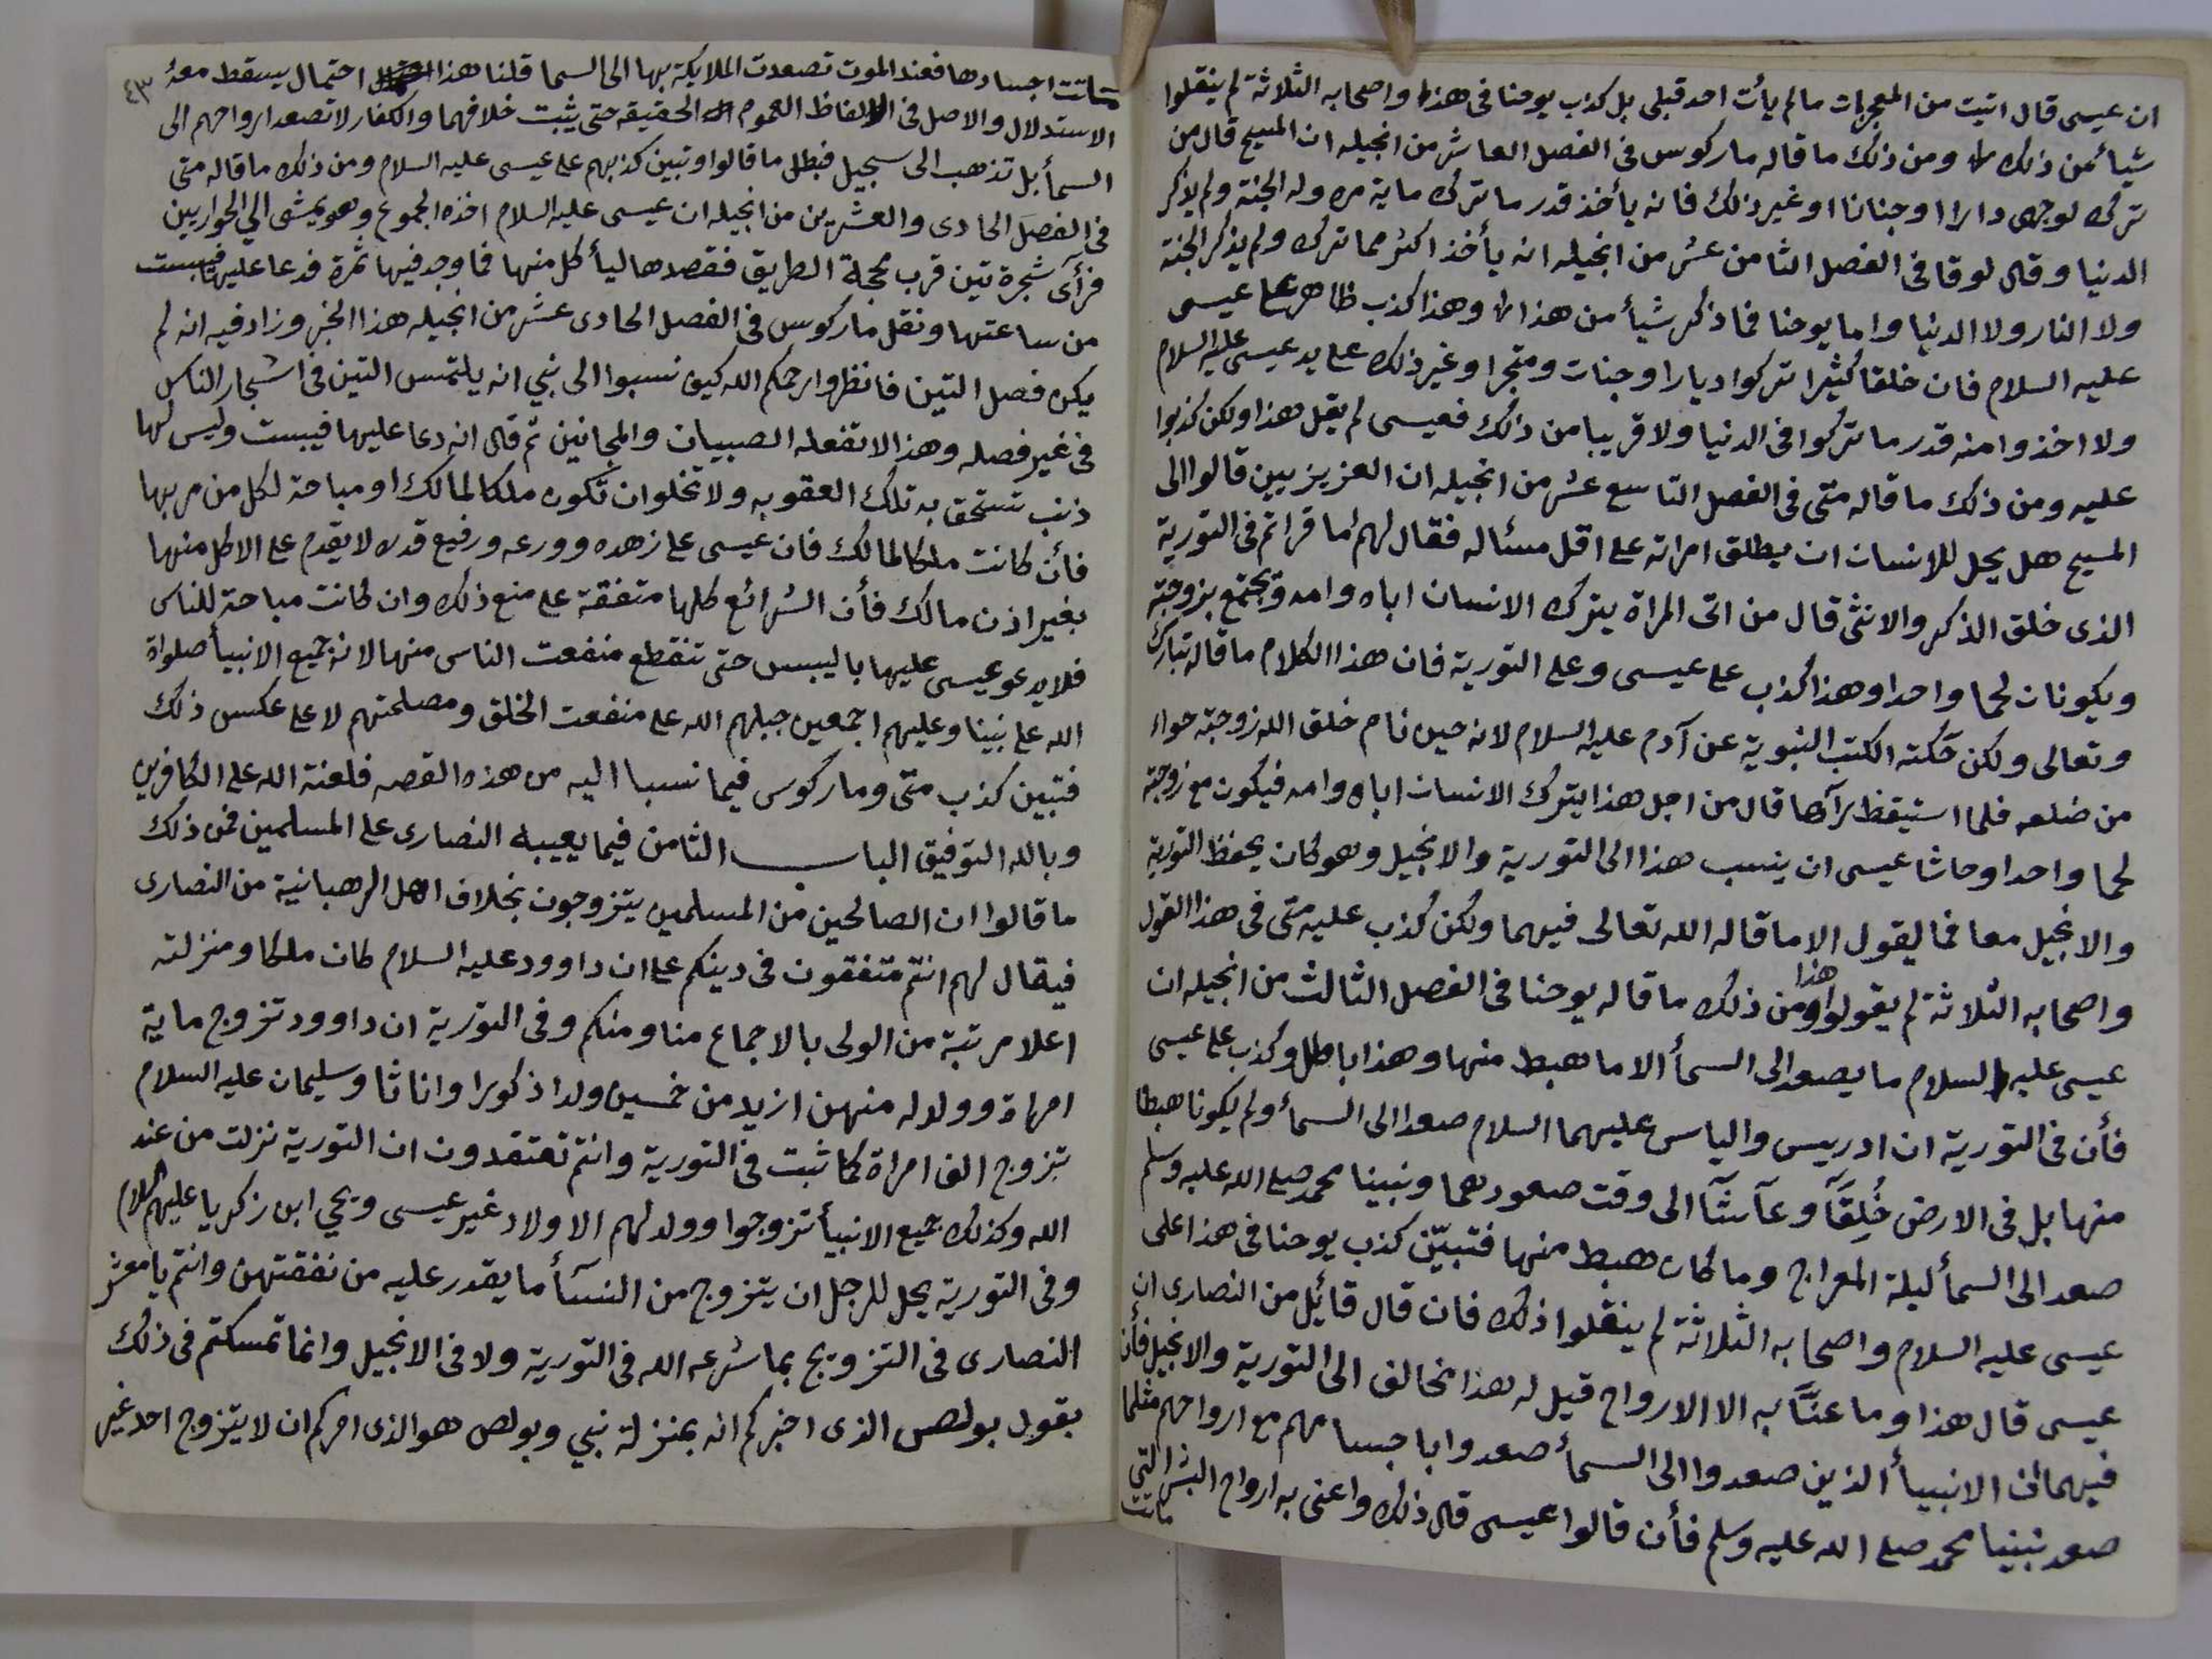 ان عيسى قال اتيت من المعجزات مالم يأت احد قبلى بل كذب يوحنا فى هذا واصحابه الثلاثة لم ينقلوا
شيأ من ذلك ومن ذلك ما قاله ماركوس فى الفصل العاشر من انجيله ان المسيح قال من
ترك لوجهى دارا اوجنانا اوغير ذلك فانه يأخذ قدر ما ترك ماية مره وله الجنة ولم يذكر
الدنيا وقال لوقا فى الفصل الثامن عشر من انجيله انه يأخذ اكثر مما ترك ولم يذكر الجنة
ولا النار ولا الدنيا واما يوحنا فما ذكر شيأ من هذا وهذا كذب ظاهر على عيسى
عليه السلام فان خلقا كثيرا تركوا ديارا وجنات ومتجرا وغير ذلك على يد عيسى عليه السلام
ولا اخذوا منه قدر ما تركوا فى الدنيا ولا قريبا من ذلك فعيسى لم يقل هذا ولكن كذبوا
عليه ومن ذلك ما قاله متى فى الفصل التاسع عشر من انجيله ان العزيزيين قالوا الى
المسيح هل يحل للانسان ان يطلق امراته على اقل مسئاله فقال لهم اما قراتم فى التورية
الذى خلق الذكر والانثى قال من اتى المراة يترك الانسان اباه وامه ويجتمع بزوجته
ويكونان لحما واحدا وهذا كذب على عيسى وعلى التورية فان هذا الكلام ما قاله تبارك
وتعالى ولكن حكته الكتب النبوية عن آدم عليه السلام لانه حين نام خلق الله زوجته حواء
من ضلعه فلما استيقظ رآها قال من اجل هذا يترك الانسان اباه وامه فيكون مع زوجته
لحما واحدا وحاشا عيسى ان ينسب هذا الى التورية والانجيل وهو كان يحفظ التورية
والانجيل معا فما ليقول الا ما قاله الله تعالى فيهما ولكن كذب عليه متى فى هذا القول
واصحابه الثلاثة لم يقولوا هذا ومن ذلك ما قاله يوحنا فى الفصل الثالث من انجيله ان
عيسى عليه السلام ما يصعد الى السمأ الا ما هبط منها وهذا باطل وكذب على عيسى
فأن فى التورية ان ادريس والياس عليهما السلام صعدا الى السمأ ولم يكونا هبطا
منها بل فى الارض خُلِقَآ وعآشآ الى وقت صعودهما ونبينا محمد صلى الله عليه وسلم
صعد الى السمأ ليلة المعراج وما كان هبط منها فتبيّن كذب يوحنا فى هذا على
عيسى عليه السلام واصحابه الثلاثة لم ينقلوا ذلك فان قال قائل من النصارى ان
عيسى قال هذا وما عنَّا به الا الارواح قيل له هذا مخالف الى التورية والانجيل فأن
فيهما ان الانبيأ الذين صعدوا الى السمأ صعدوا باجسامهم مع ارواحهم مثلما
صعد نبينا محمد صلى الله عليه وسلم فأن قالوا عيسى قال ذلك واعنى به ارواح البشر التى
ماتت
٤٣
ماتت اجسادها فعند الموت تصعدت الملايكة بها الى السما قلنا هذا احتمال يسقط معه
الاستدلال والاصل فى الالفاظ العموم الحقيقه حتى يثبت خلافهما والكفار لا تصعد ارواحهم الى
السمأ بل تذهب الى سجيل فبطل ما قالوا وتبين كذبهم على عيسى عليه السلام ومن ذلك ما قاله متى
فى الفصل الحادى والعشرين من انجيله ان عيسى عليه السلام اخذه الجموع وهو يمشى الي الحواريين
فرآى شجرة تين قرب محجة الطريق فقصدها ليأكل منها فما وجد فيها ثمرة فدعا عليها فيبست
من ساعتها ونقل ماركوس فى الفصل الحادى عشر من انجيله هذا الخبر وزاد فيه انه لم
يكن فصل التين فانظروا رحمكم الله كيف نسبوا الى نبي انه يلتمس التين فى اشجار الناس
فى غير فصله وهذا لا تفعله الصبيان والمجانين ثم قال انه دعا عليها فيبست وليس لها
ذنب تستحق به تلك العقوبه ولا تخلوا ن تكون ملكا لمالك او مباحة لكل من مر بها
فأن كانت ملكا لمالك فان عيسى على زهده وورعه ورفيع قدره لا يقدم على الاكل منها
بغير اذن مالك فأن الشرائع كلها متفقة على منع ذلك وان كانت مباحة للناس
فلا يدعو عيسى عليها باليبس حتى تنقطع منفعت الناس منها لانه جميع الانبيأ صلواة
الله على نبينا وعليهم اجمعين جبلهم الله على منفعت الخلق ومصلحتهم لا على عكس ذلك
فتبين كذب متى وماركوس فيما نسبا اليه من هذه القصه فلعنة الله على الكافرين
وبالله التوفيق الباب الثامن فيما يعيبه النصارى على المسلمين فمن ذلك
ما قالوا ان الصالحين من المسلمين يتزوجون بخلاف اهل الرهبانية من النصارى
فيقال لهم انتم متفقون فى دينكم على ان داوود عليه السلام كان ملكا ومنزلته
اعلا مرتبة من الولى بالاجماع منا ومنكم وفى التورية ان داوود تزوج ماية
امراة وولد له منهن ازيد من خمسين ولدا ذكورا واناثا وسليمان عليه السلام
تزوج الف امراة كما ثبت فى التورية وانتم تعتقدون ان التورية نزلت من عند
الله وكذلك جميع الانبيأ تزوجوا وولد لهم الاولاد غير عيسى ويحي ابن زكريا عليهم السلام
وفى التورية يحل للرجل ان يتزوج من النسآء ما يقدر عليه من نفقتهن وانتم يا معشر
النصارى فى التزويج بما شرعه الله فى التورية ولا فى الانجيل وانما تمسكتم فى ذلك
بقول بولص الذى اخبركم انه بمنزلة نبي وبولص هو الذى امركم ان لا يتزوج احد غير